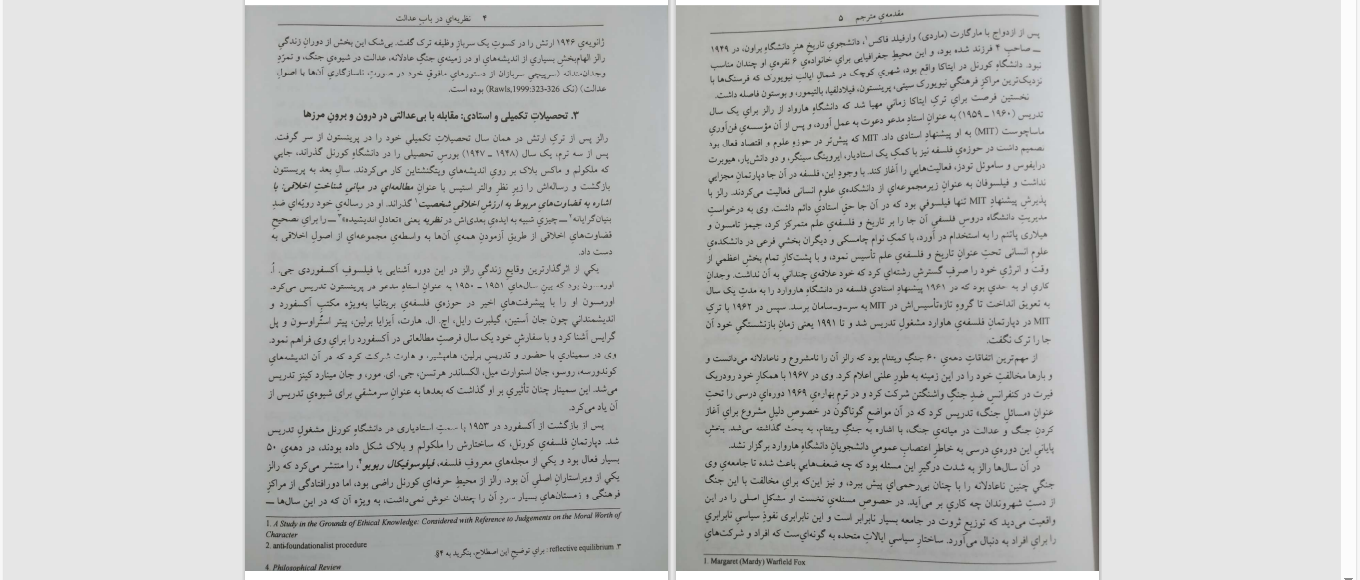 ۴ نظریه‌ای در باب عدالت
ژانویه‌ی ۱۹۴۶ ارتش را در کسوت یک سرباز وظیفه ترک گفت. بی‌شک این بخش از دوران زندگی
رالز الهام‌بخش بسیاری از اندیشه‌های او در زمینه‌ی جنگ عادلانه، عدالت در شیوه‌ی جنگ، و تمرد
وجدان‌مندانه (سرپیچی سربازان از دستورهای مافوق خود در صورت ناسازگاری آن‌ها با اصول
عدالت) (نک Rawls,1999:323-326) بوده است.
۳. تحصیلات تکمیلی و استادی: مقابله با بی‌عدالتی در درون و برون مرزها
رالز پس از ترک ارتش در همان سال تحصیلات تکمیلی خود را در پرینستون از سر گرفت.
پس از سه ترم، یک سال (۱۹۴۸ ـ ۱۹۴۷) بورس تحصیلی را در دانشگاه کورنل گذراند، جایی
که ملکولم و ماکس بلاک بر روی اندیشه‌های ویتگنشتاین کار می‌کردند. سال بعد به پرینستون
بازگشت و رساله‌اش را زیر نظر والتر استیس با عنوان مطالعه‌ای در مبانی شناخت اخلاقی: با
اشاره به قضاوت‌های مربوط به ارزش اخلاقی شخصیت۱ گذراند. او در رساله‌ی خود رویّه‌ای ضدِ
بنیان‌گرایانه۲ ـ چیزی شبیه به ایده‌ی بعدی‌اش در نظریه یعنی «تعادل اندیشیده»۳ ـ را برای تصحیح
قضاوت‌های اخلاقی از طریق آزمودن همه‌ی آن‌ها به واسطه‌ی مجموعه‌ای از اصول اخلاقی به
دست داد.
یکی از اثرگذارترین وقایع زندگی رالز در این دوره آشنایی با فیلسوف آکسفوردی جی. اُ.
اورمسون بود که بین سال‌های ۱۹۵۱ ـ ۱۹۵۰ به عنوان استاد مدعو در پرینستون تدریس می‌کرد.
اورمسون او را با پیشرفت‌های اخیر در حوزه‌ی فلسفه‌ی بریتانیا به‌ویژه مکتب آکسفورد و
اندیشمندانی چون جان آستین، گیلبرت رایل، اچ. ال. هارت، آیزایا برلین، پیتر استراوسون و پل
گرایس آشنا کرد و با سفارش خود یک سال فرصت مطالعاتی در آکسفورد را برای وی فراهم نمود.
وی در سمیناری با حضور و تدریس برلین، هامپشیر، و هارت شرکت کرد که در آن اندیشه‌های
کوندورسه، روسو، جان استوارت میل، الکساندر هرتسن، جی. ای. مور، و جان مینارد کینز تدریس
می‌شد. این سمینار چنان تأثیری بر او گذاشت که بعدها به عنوان سرمشقی برای شیوه‌ی تدریس از
آن یاد می‌کرد.
پس از بازگشت از آکسفورد در ۱۹۵۳ با سمت استادیاری در دانشگاه کورنل مشغول تدریس
شد. دپارتمان فلسفه‌ی کورنل، که ساختارش را ملکولم و بلاک شکل داده بودند، در دهه‌ی ۵۰
بسیار فعال بود و یکی از مجله‌های معروف فلسفه، فیلوسوفیکال ریویو۴، را منتشر می‌کرد که رالز
یکی از ویراستاران اصلی آن بود. رالز از محیط حرفه‌ای کورنل راضی بود، اما دورافتادگی از مراکز
فرهنگی و زمستان‌های بسیار سرد آن را چندان خوش نمی‌داشت، به ویژه آن که در این سال‌ها ـ
1. A Study in the Grounds of Ethical Knowledge: Considered with Reference to Judgements on the Moral Worth of
Character
2. anti-foundationalist procedure
۳. reflective equilibrium : برای توضیح این اصطلاح، بنگرید به ۴§
4. Philosophical Review
مقدمه‌ی مترجم ۵
پس از ازدواج با مارگارت (ماردی) وارفیلد فاکس۱، دانشجوی تاریخ هنر دانشگاه براون، در ۱۹۴۹
ـ صاحب ۴ فرزند شده بود، و این محیط جغرافیایی برای خانواده‌ی ۶ نفره‌ی او چندان مناسب
نبود. دانشگاه کورنل در ایتاکا واقع بود، شهری کوچک در شمال ایالت نیویورک که فرسنگ‌ها با
نزدیک‌ترین مراکز فرهنگی نیویورک سیتی، پرینستون، فیلادلفیا، بالتیمور، و بوستون فاصله داشت.
نخستین فرصت برای ترک ایتاکا زمانی مهیا شد که دانشگاه هاروارد از رالز برای یک سال
تدریس (۱۹۶۰ ـ ۱۹۵۹) به عنوان استاد مدعو دعوت به عمل آورد، و پس از آن مؤسسه‌ی فن‌آوری
ماساچوست (MIT) به او پیشنهاد استادی داد. MIT که پیش‌تر در حوزه علوم و اقتصاد فعال بود
تصمیم داشت در حوزه‌ی فلسفه نیز با کمک یک استادیار، ایروینگ سینگر، و دو دانش‌یار، هیوبرت
درایفوس و ساموئل تودز، فعالیت‌هایی را آغاز کند. با وجود این، فلسفه در آن جا دپارتمان مجزایی
نداشت و فیلسوفان به عنوان زیرمجموعه‌ای از دانشکده‌ی علوم انسانی فعالیت می‌کردند. رالز با
پذیرش پیشنهاد MIT تنها فیلسوفی بود که در آن جا حق استادی دائم داشت. وی به درخواست
مدیریت دانشگاه دروس فلسفی آن جا را بر تاریخ و فلسفه‌ی علم متمرکز کرد، جیمز تامسون و
هیلاری پاتنم را به استخدام در آورد، با کمک نوام چامسکی و دیگران بخشی فرعی در دانشکده‌ی
علوم انسانی تحت عنوان تاریخ و فلسفه‌ی علم تأسیس نمود، و با پشت‌کار تمام بخش اعظمی از
وقت و انرژی خود را صرف گسترش رشته‌ای کرد که خود علاقه‌ی چندانی به آن نداشت. وجدان
کاری او به حدی بود که در ۱۹۶۱ پیشنهاد استادی فلسفه در دانشگاه هاروارد را به مدت یک سال
به تعویق انداخت تا گروه تازه‌تأسیس‌اش در MIT به سر‌ـ‌و‌ـ‌سامان برسد. سپس در ۱۹۶۲ با ترک
MIT در دپارتمان فلسفه‌ی هاوارد مشغول تدریس شد و تا ۱۹۹۱ یعنی زمان بازنشستگی خود آن
جا را ترک نگفت.
از مهم‌ترین اتفاقات دهه‌ی ۶۰ جنگ ویتنام بود که رالز آن را نامشروع و ناعادلانه می‌دانست و
و بارها مخالفت خود را در این زمینه به طور علنی اعلام کرد. وی در ۱۹۶۷ با همکار خود رودریک
فیرت در کنفرانس ضد جنگ واشنگتن شرکت کرد و در ترم بهاره‌ی ۱۹۶۹ دوره‌ای درسی را تحت
عنوان «مسائل جنگ» تدریس کرد که در آن مواضع گوناگون در خصوص دلیل مشروع برای آغاز
کردن جنگ و عدالت در میانه‌ی جنگ، با اشاره به جنگ ویتنام، به بحث گذاشته می‌شد. بخش
پایانی این دوره‌ی درسی به خاطر اعتصاب عمومی دانشجویان دانشگاه هاروارد برگزار نشد.
در آن سال‌ها رالز به شدت درگیر این مسئله بود که چه ضعف‌هایی باعث شده تا جامعه‌ی وی
جنگی چنین ناعادلانه را با چنان بی‌رحمی‌ای پیش ببرد، و نیز این‌که برای مخالفت با این جنگ
از دست شهروندان چه کاری بر می‌آید. در خصوص مسئله‌ی نخست او مشکل اصلی را در این
واقعیت می‌دید که توزیع ثروت در جامعه بسیار نابرابر است و این نابرابری نفوذ سیاسی نابرابری
را برای افراد به دنبال می‌آورد. ساختار سیاسی ایالات متحده به گونه‌ای‌ست که افراد و شرکت‌های
1 Margaret (Mardy) Warfield Fox